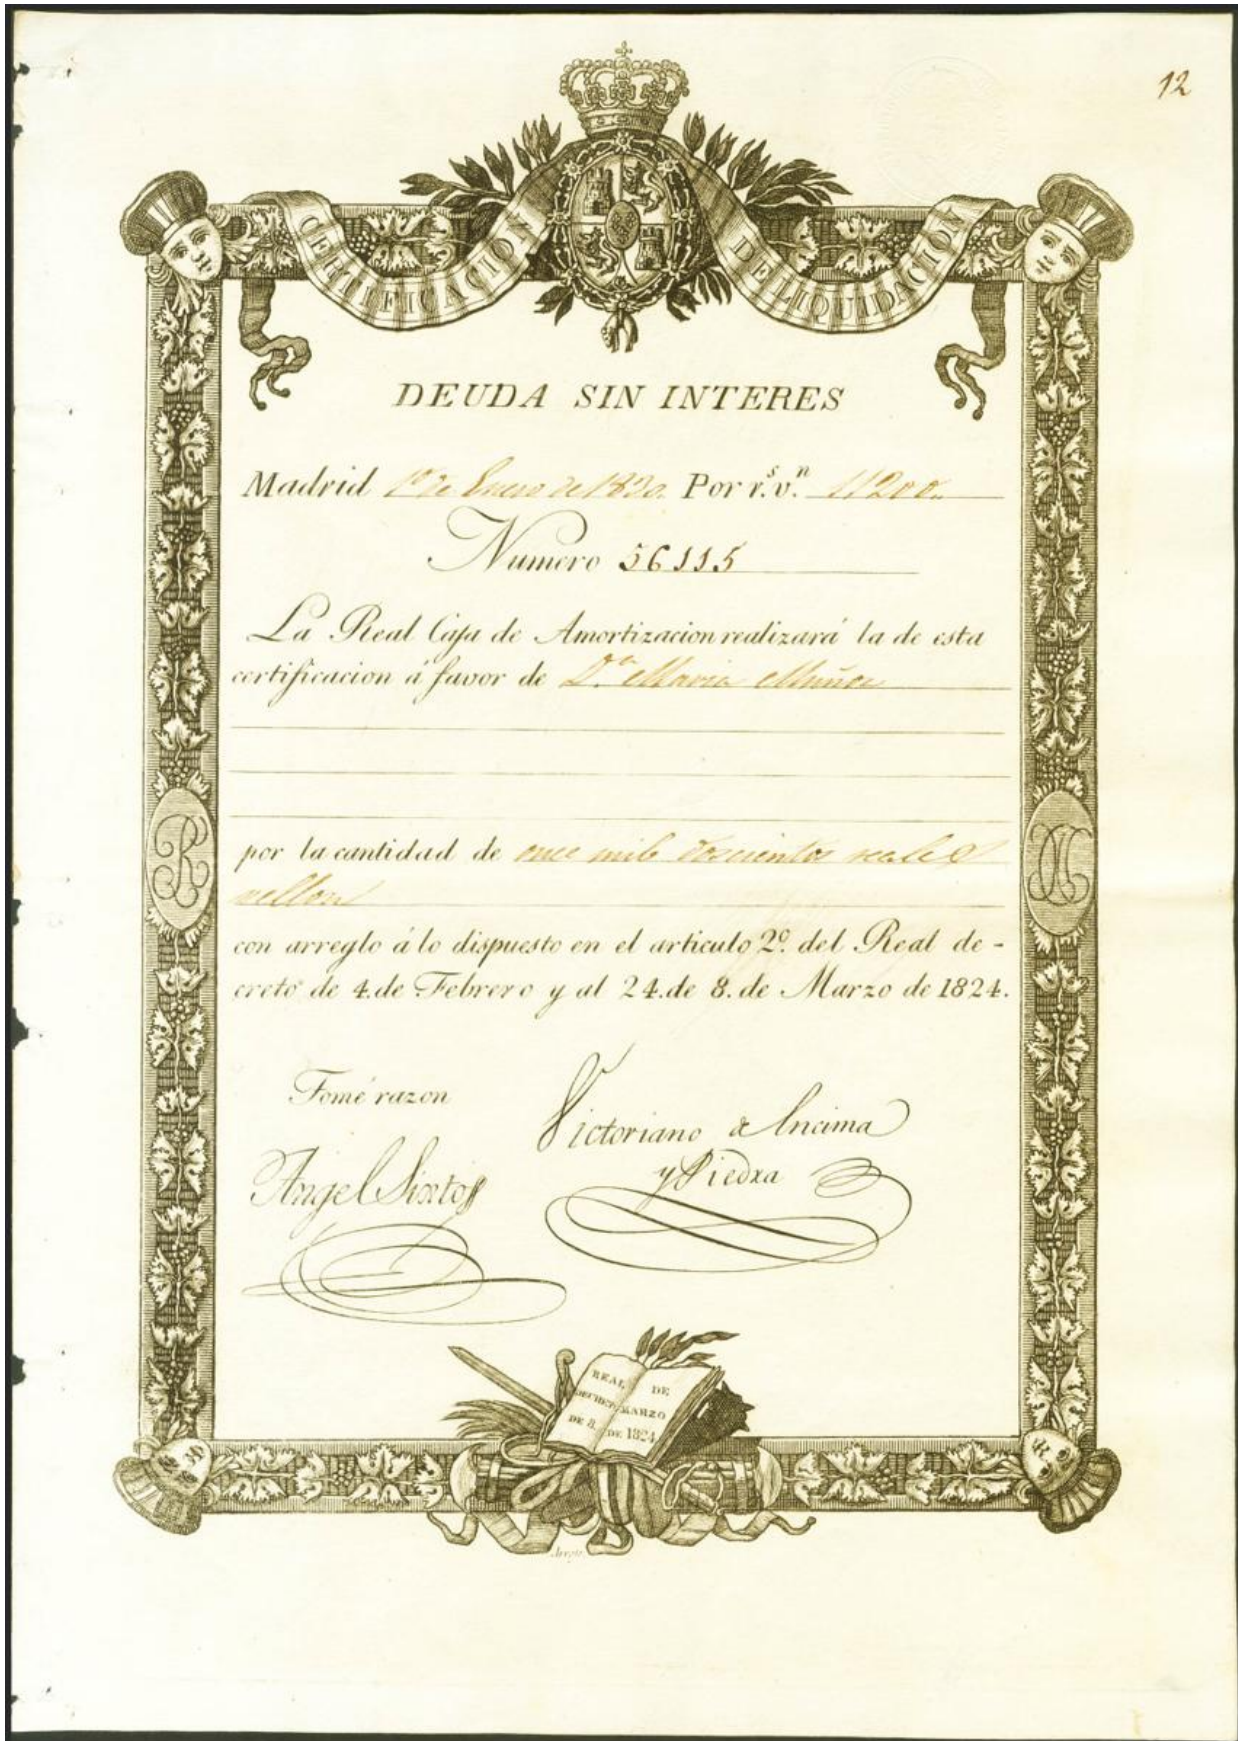 12
CERTIFICACION DE LIQUIDACION
DEUDA SIN INTERES
Madrid 1º de Enero de 1830. Por r.s v.n 11200..
Numero 56115
La Real Caja de Amortizacion realizará la de esta
certificacion á favor de D.ª Maria Muñoz
por la cantidad de once mil doscientos reales
vellon
con arreglo á lo dispuesto en el articulo 2º. del Real de-
creto de 4. de Febrero y al 24. de 8. de Marzo de 1824.
Tomé razon
Victoriano de Encima
y Piedra
Angel Sixto
REAL
DECRETO
DE 8.
DE
MARZO
DE 1824